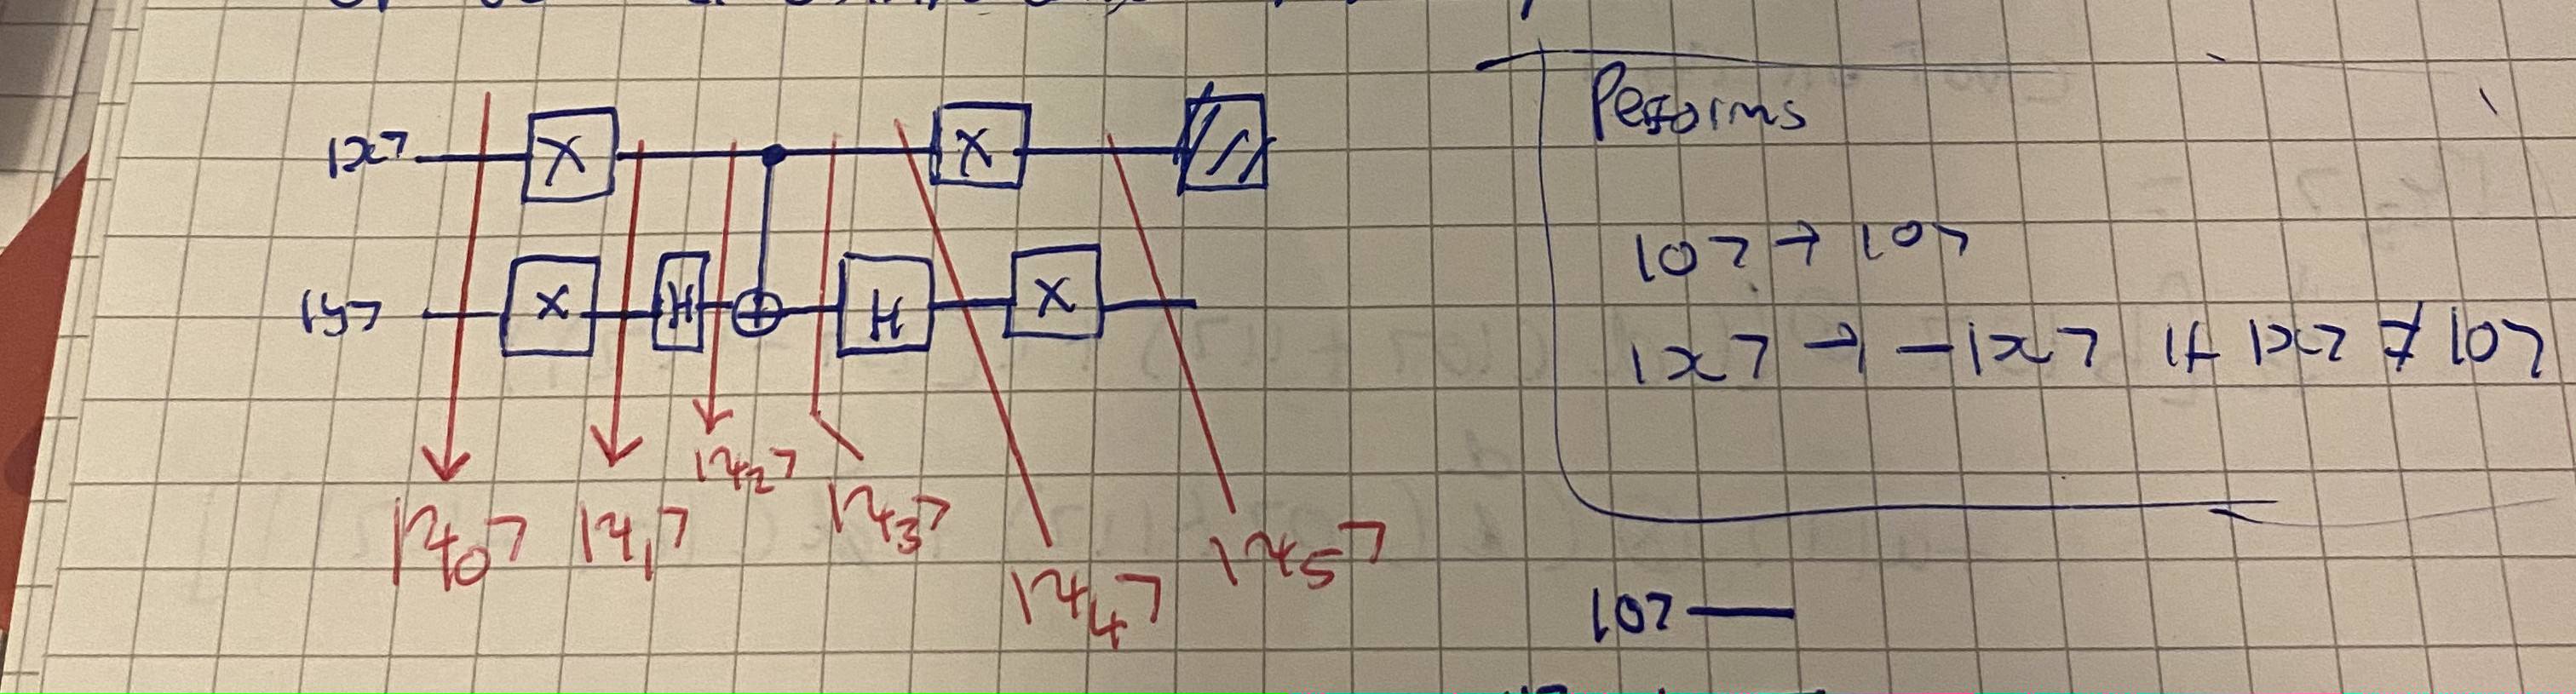 |x> X X
|y> X H H X
|ψ0> |ψ1> |ψ2> |ψ3> |ψ4> |ψ5>
Performs
|0> → |0>
|x> → -|x> if |x> ≠ |0>
|0>